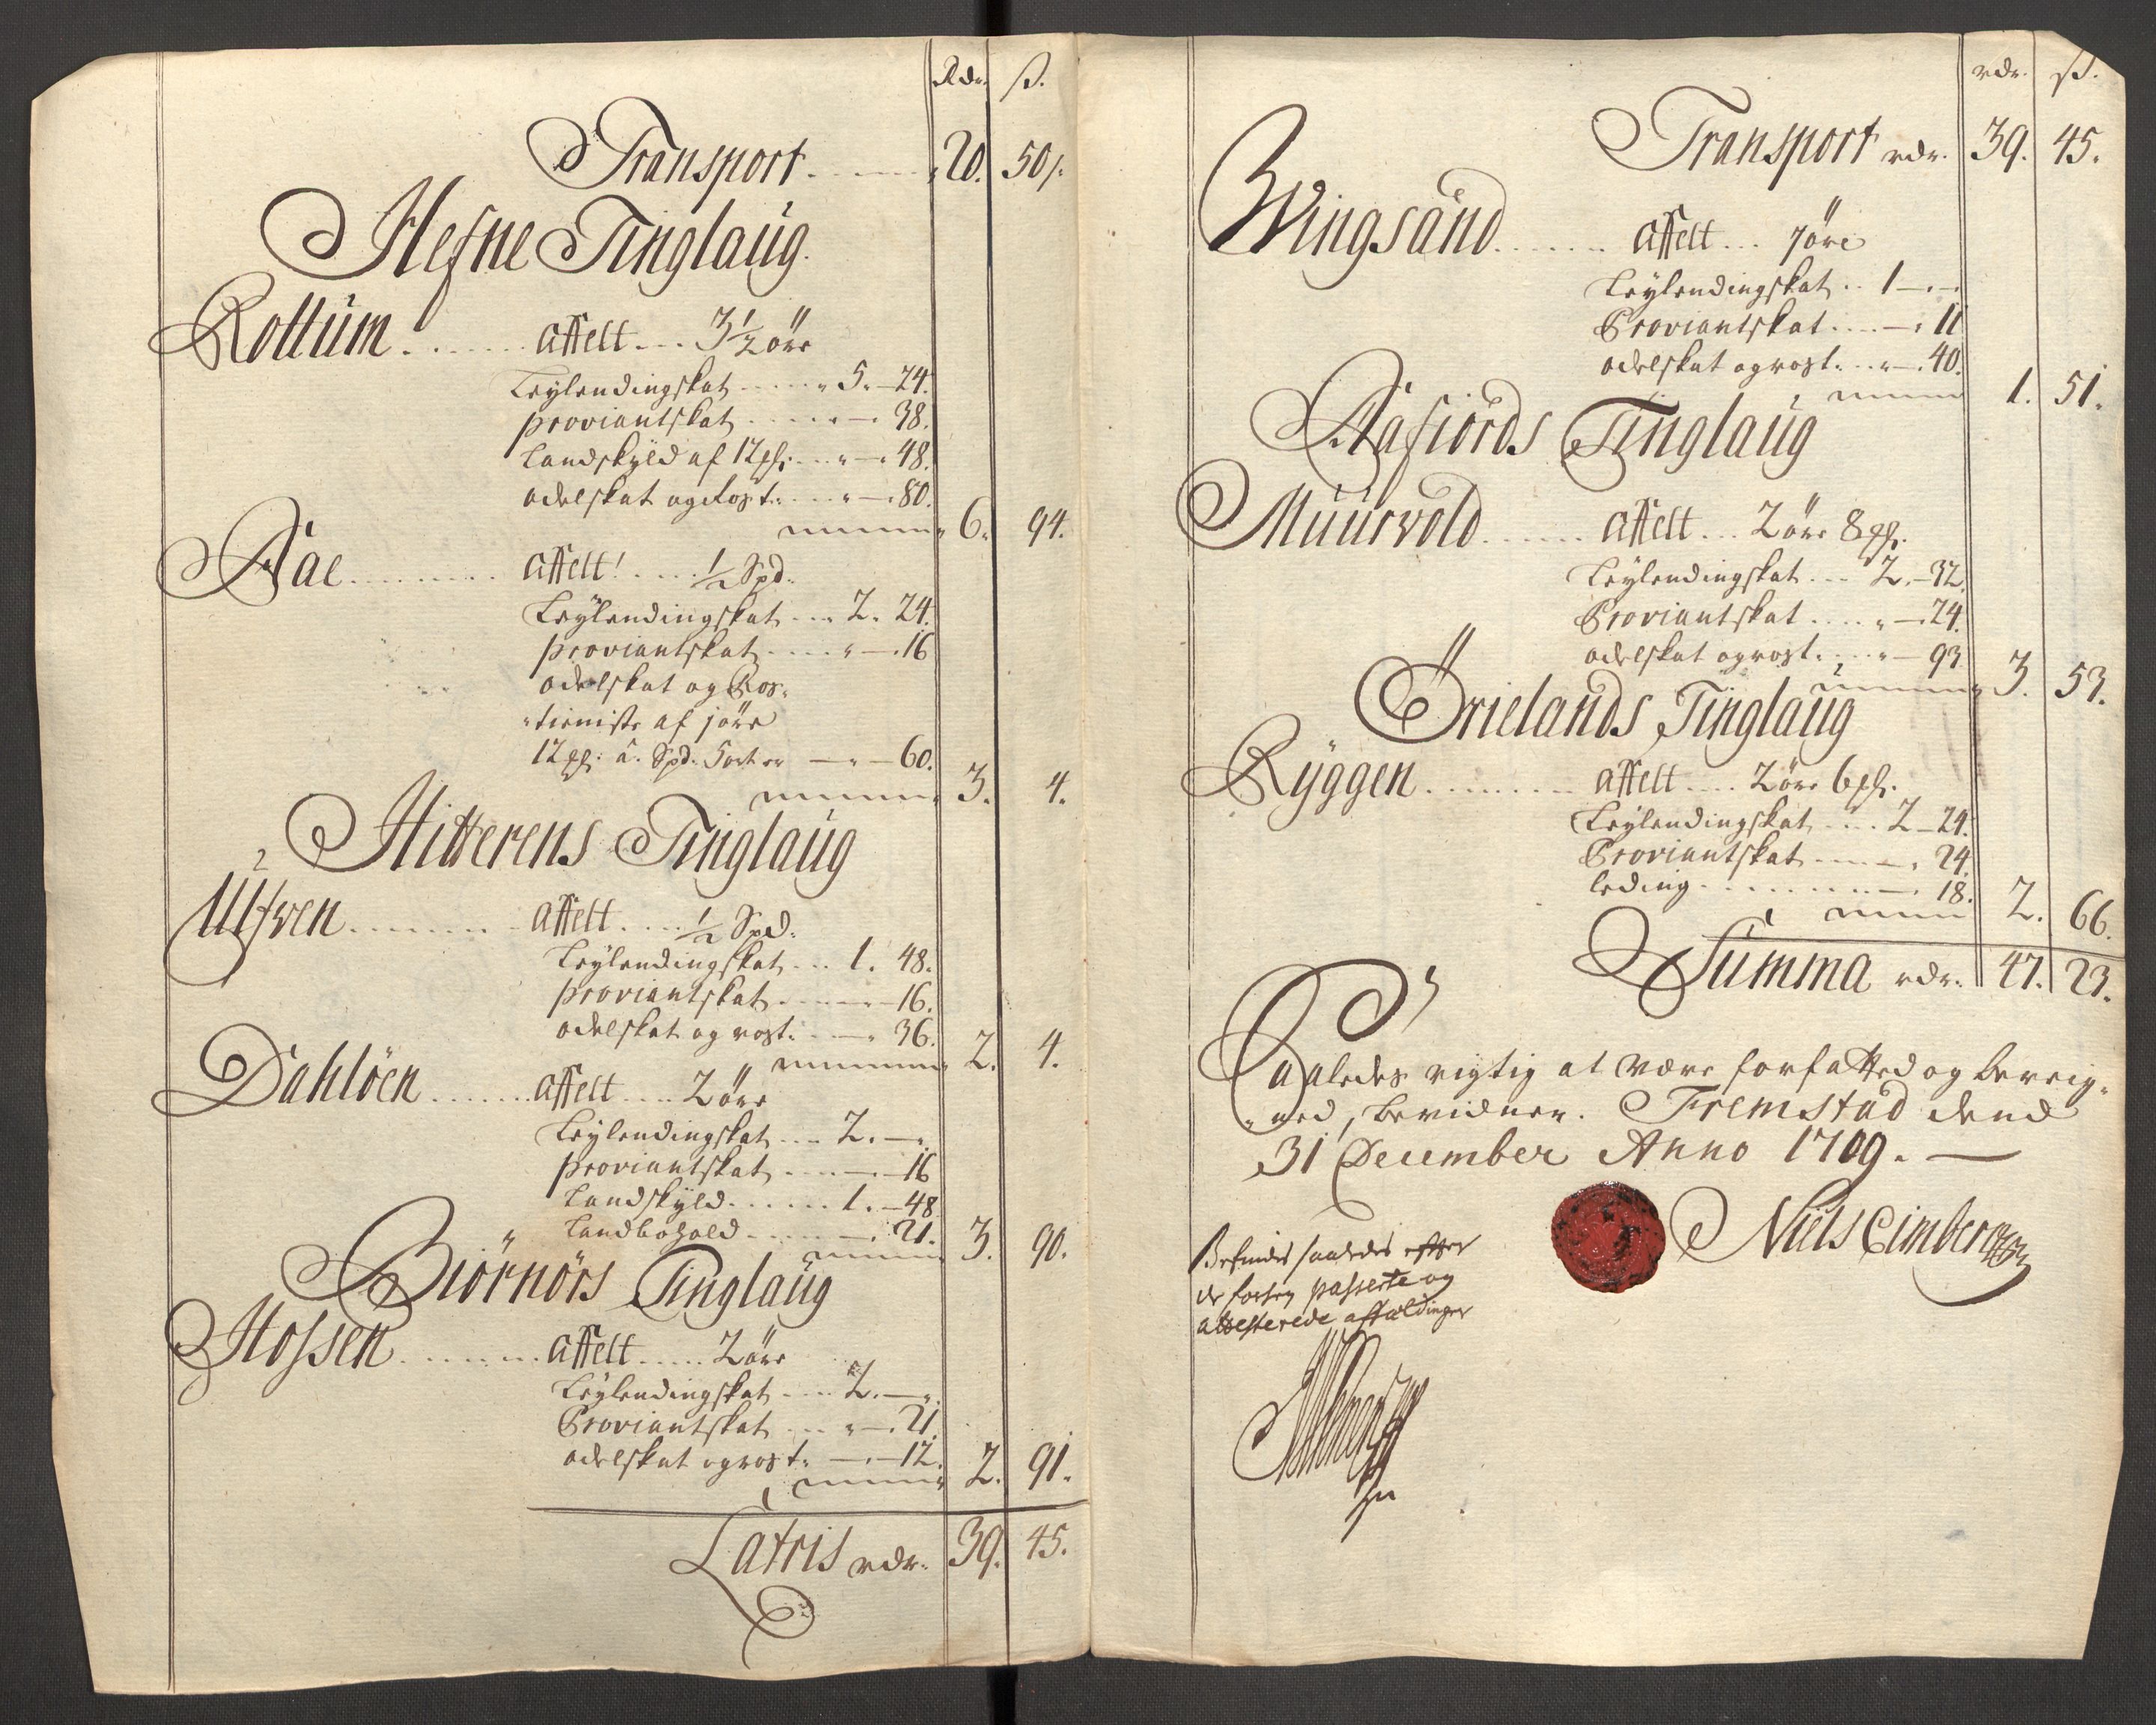 Rdr. ß.
Transport 20. 50.
Hefne Tinglaug.
Rottum affelt 3 1/2 öre
Leylendingskat 5. 24.
proviantskat 38.
Landskyld af 12 pf: 48.
odelskat og Rost: 80.
6. 94.
Aae affelt 1/2 Spd:
Leylendingskat 2. 24.
proviantskat 16
odelskat og Ros-
tieniste af j öre
12 pf: à Spd: 5 ort er 60.
3. 4.
Hitterens Tinglaug
Ulfven affelt 1/2 Spd:
Leylendingskat 1. 48.
proviantskat 16.
odelskat og rost: 36.
2. 4.
Dahlöen affelt 2 öre
Leylendingskat 2.
proviantskat 16
Landskyld 1. 48.
Landbohold 21.
3. 90.
Biörnörs Tinglaug
Hossen affelt 2 öre
Leylendingskat 2.
Proviantskat 21.
odelskat og rost: 12.
2. 91.
Latris rdr: 39. 45.
rdr. ß.
Transport rdr. 39. 45.
Wingsand affelt j öre
Leylendingskat 1
Proviantskat 11
odelskat og rost: 40.
1. 51.
Aafiords Tinglaug
Muurvold affelt 2 öre 8 pf:
Leylendingskat 2. 32.
Proviantskat 24.
odelskat og rost: 93
3. 53.
Örielands Tinglaug
Ryggen affelt 2 öre 6 pf:
Leylendingskat 2. 24.
Proviantskat 24.
leding 18.
2. 66.
Summa rdr: 47. 23.
Saaledes rigtig at være forfatted og bereig-
ned, bevidner. Fremstad dend
31 December Anno 1709.
Niels Cimber
Befindes saaledes efter
de forhen passerte og
attesterede aftældinger